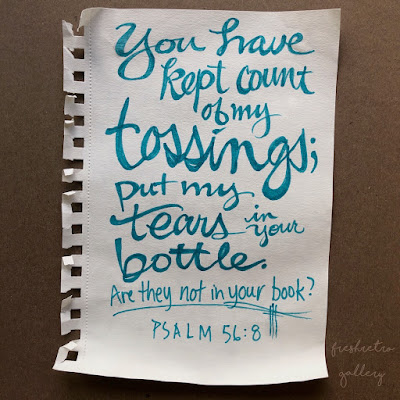 You have
kept count
of my
tossings;
put my
tears in your
bottle.
Are they not in your book?
PSALM 56:8
freshretro
gallery